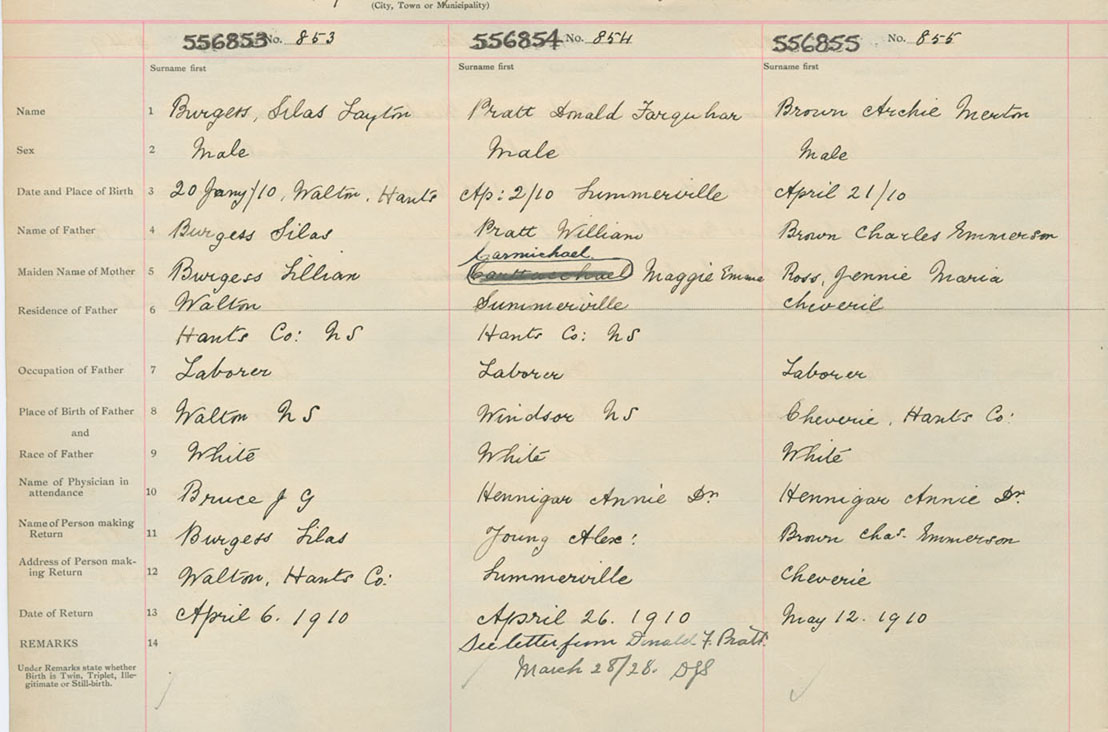 (City, Town or Municipality)
556853 No. 853 556854 No. 854 556855 No. 855
Surname first Surname first Surname first
Name 1 Burgess, Silas Layton Pratt Donald Farquhar Brown Archie Merton
Sex 2 Male Male Male
Date and Place of Birth 3 20 Jany/10, Walton, Hants Ap: 2/10 Summerville April 21/10
Name of Father 4 Burgess Silas Pratt William Brown Charles Emmerson
Carmichael
Maiden Name of Mother 5 Burgess Lillian Maggie Emma Ross, Jennie Maria
Residence of Father 6 Walton Summerville Cheveril
Hants Co: NS Hants Co: NS
Occupation of Father 7 Laborer Laborer Laborer
Place of Birth of Father 8 Walton NS Windsor NS Cheverie, Hants Co:
and
Race of Father 9 White White White
Name of Physician in
attendance 10 Bruce J G Hennigar Annie Dr. Hennigar Annie Dr.
Name of Person making
Return 11 Burgess Silas Young Alex: Brown Chas. Emmerson
Address of Person mak-
ing Return 12 Walton, Hants Co: Summerville Cheverie
Date of Return 13 April 6. 1910 April 26. 1910 May 12. 1910
REMARKS 14 See letter from Donald F. Pratt.
Under Remarks state whether March 28/28. DJS
Birth is Twin, Triplet, Ille-
gitimate or Still-birth.